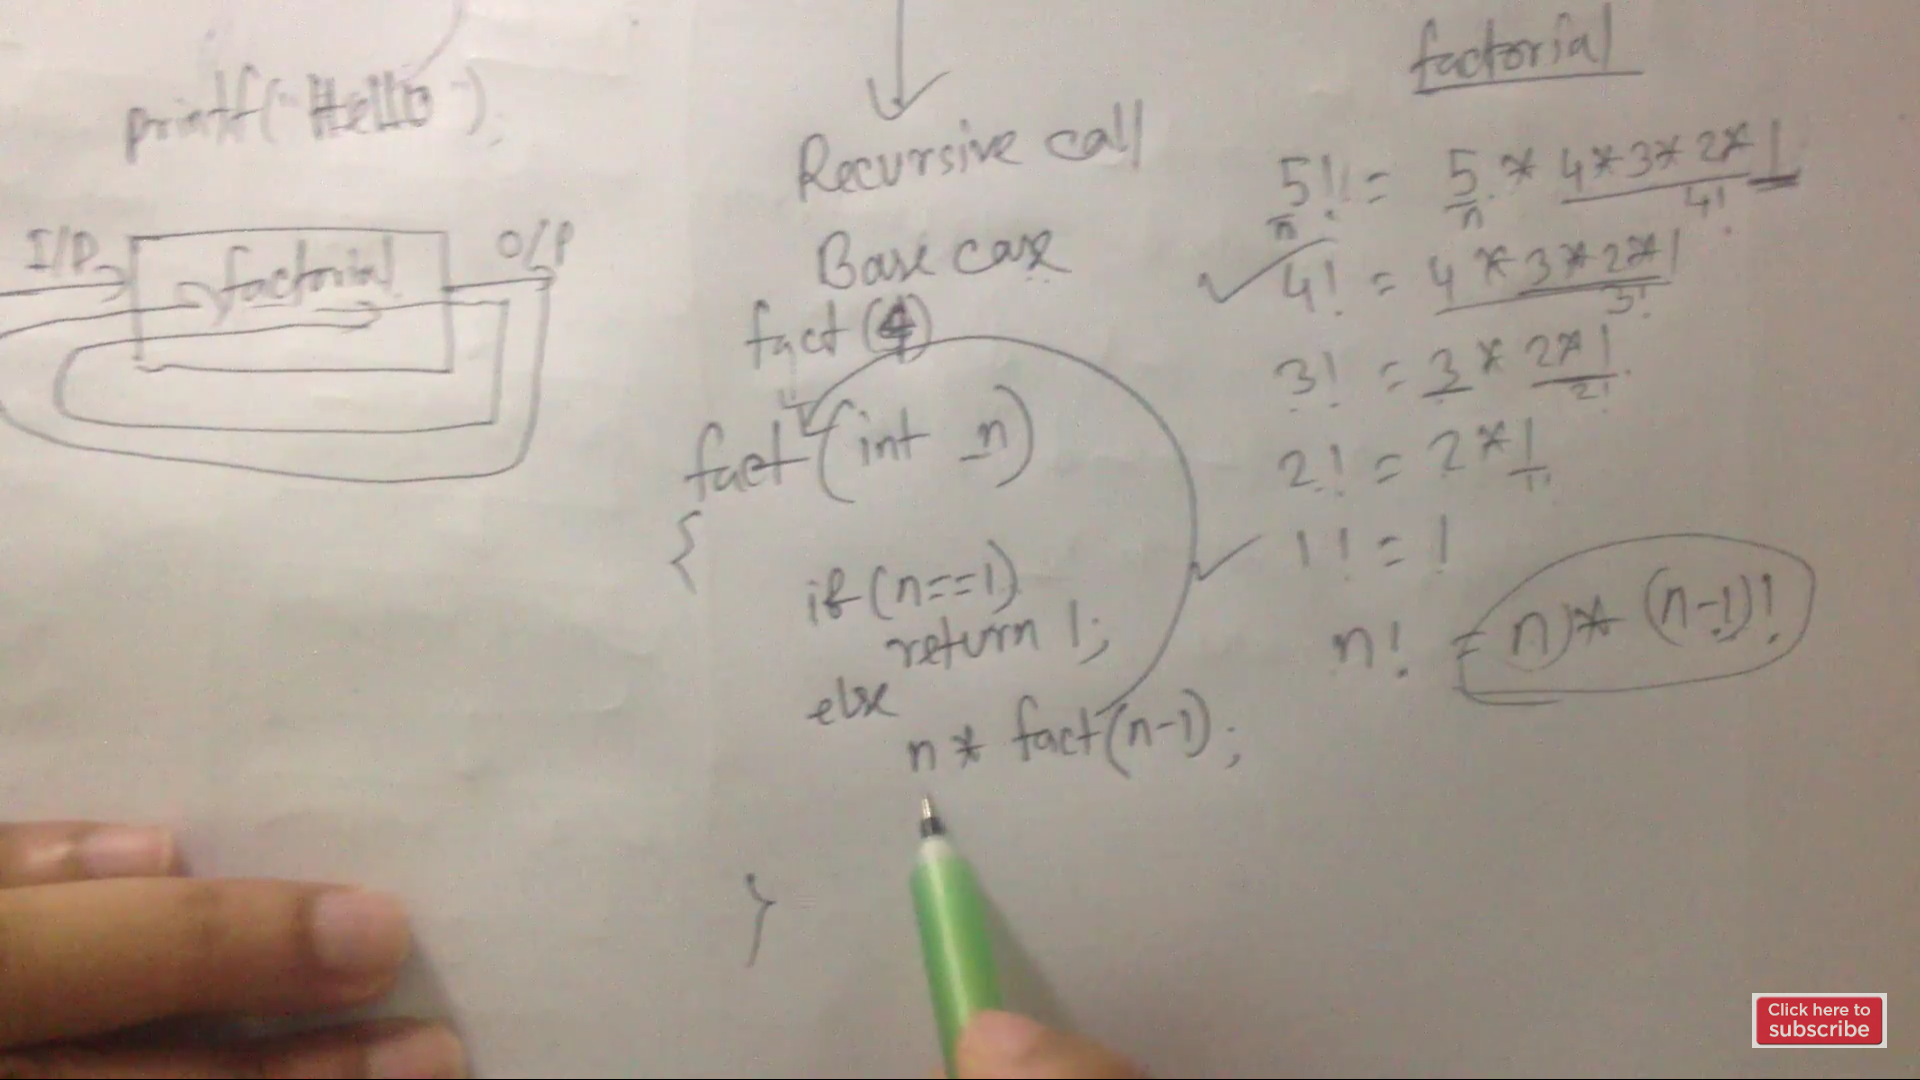 printf("Hello");
I/P
factorial
O/P
Recursive call
Base case
fact(4)
fact(int n)
{
if(n==1)
return 1;
else
n * fact(n-1);
}
factorial
5! = 5 * 4*3*2*1
n n 4!
4! = 4 * 3*2*1
3!
3! = 3 * 2*1
2!
2! = 2*1
1!
1! = 1
n! = n * (n-1)!
Click here to
subscribe